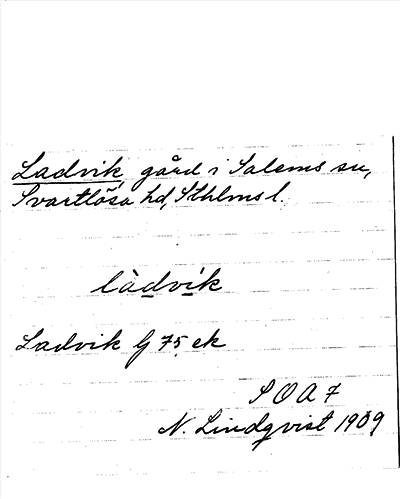 Ladvik, gård i Salems sn,
Svartlösa hd, Sthlms l.
làdvík
Ladvik G 75 ek
S O A 7
N. Lindqvist 1909